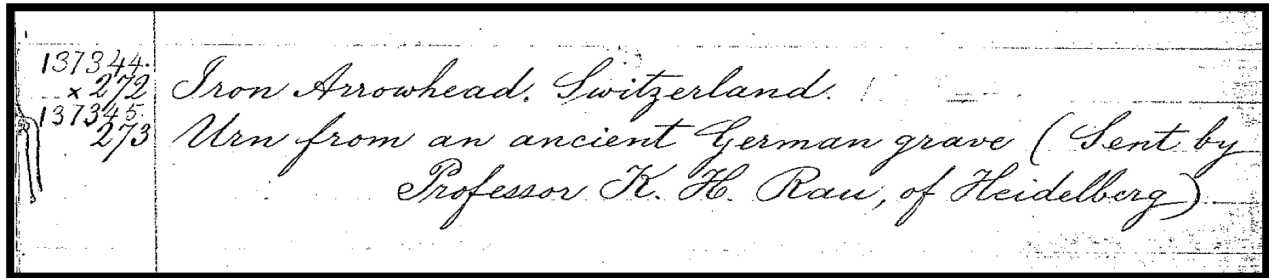 137344.
×272 Iron Arrowhead. Switzerland.
137345.
273 Urn from an ancient German grave (Sent by
Professor K. H. Rau, of Heidelberg)